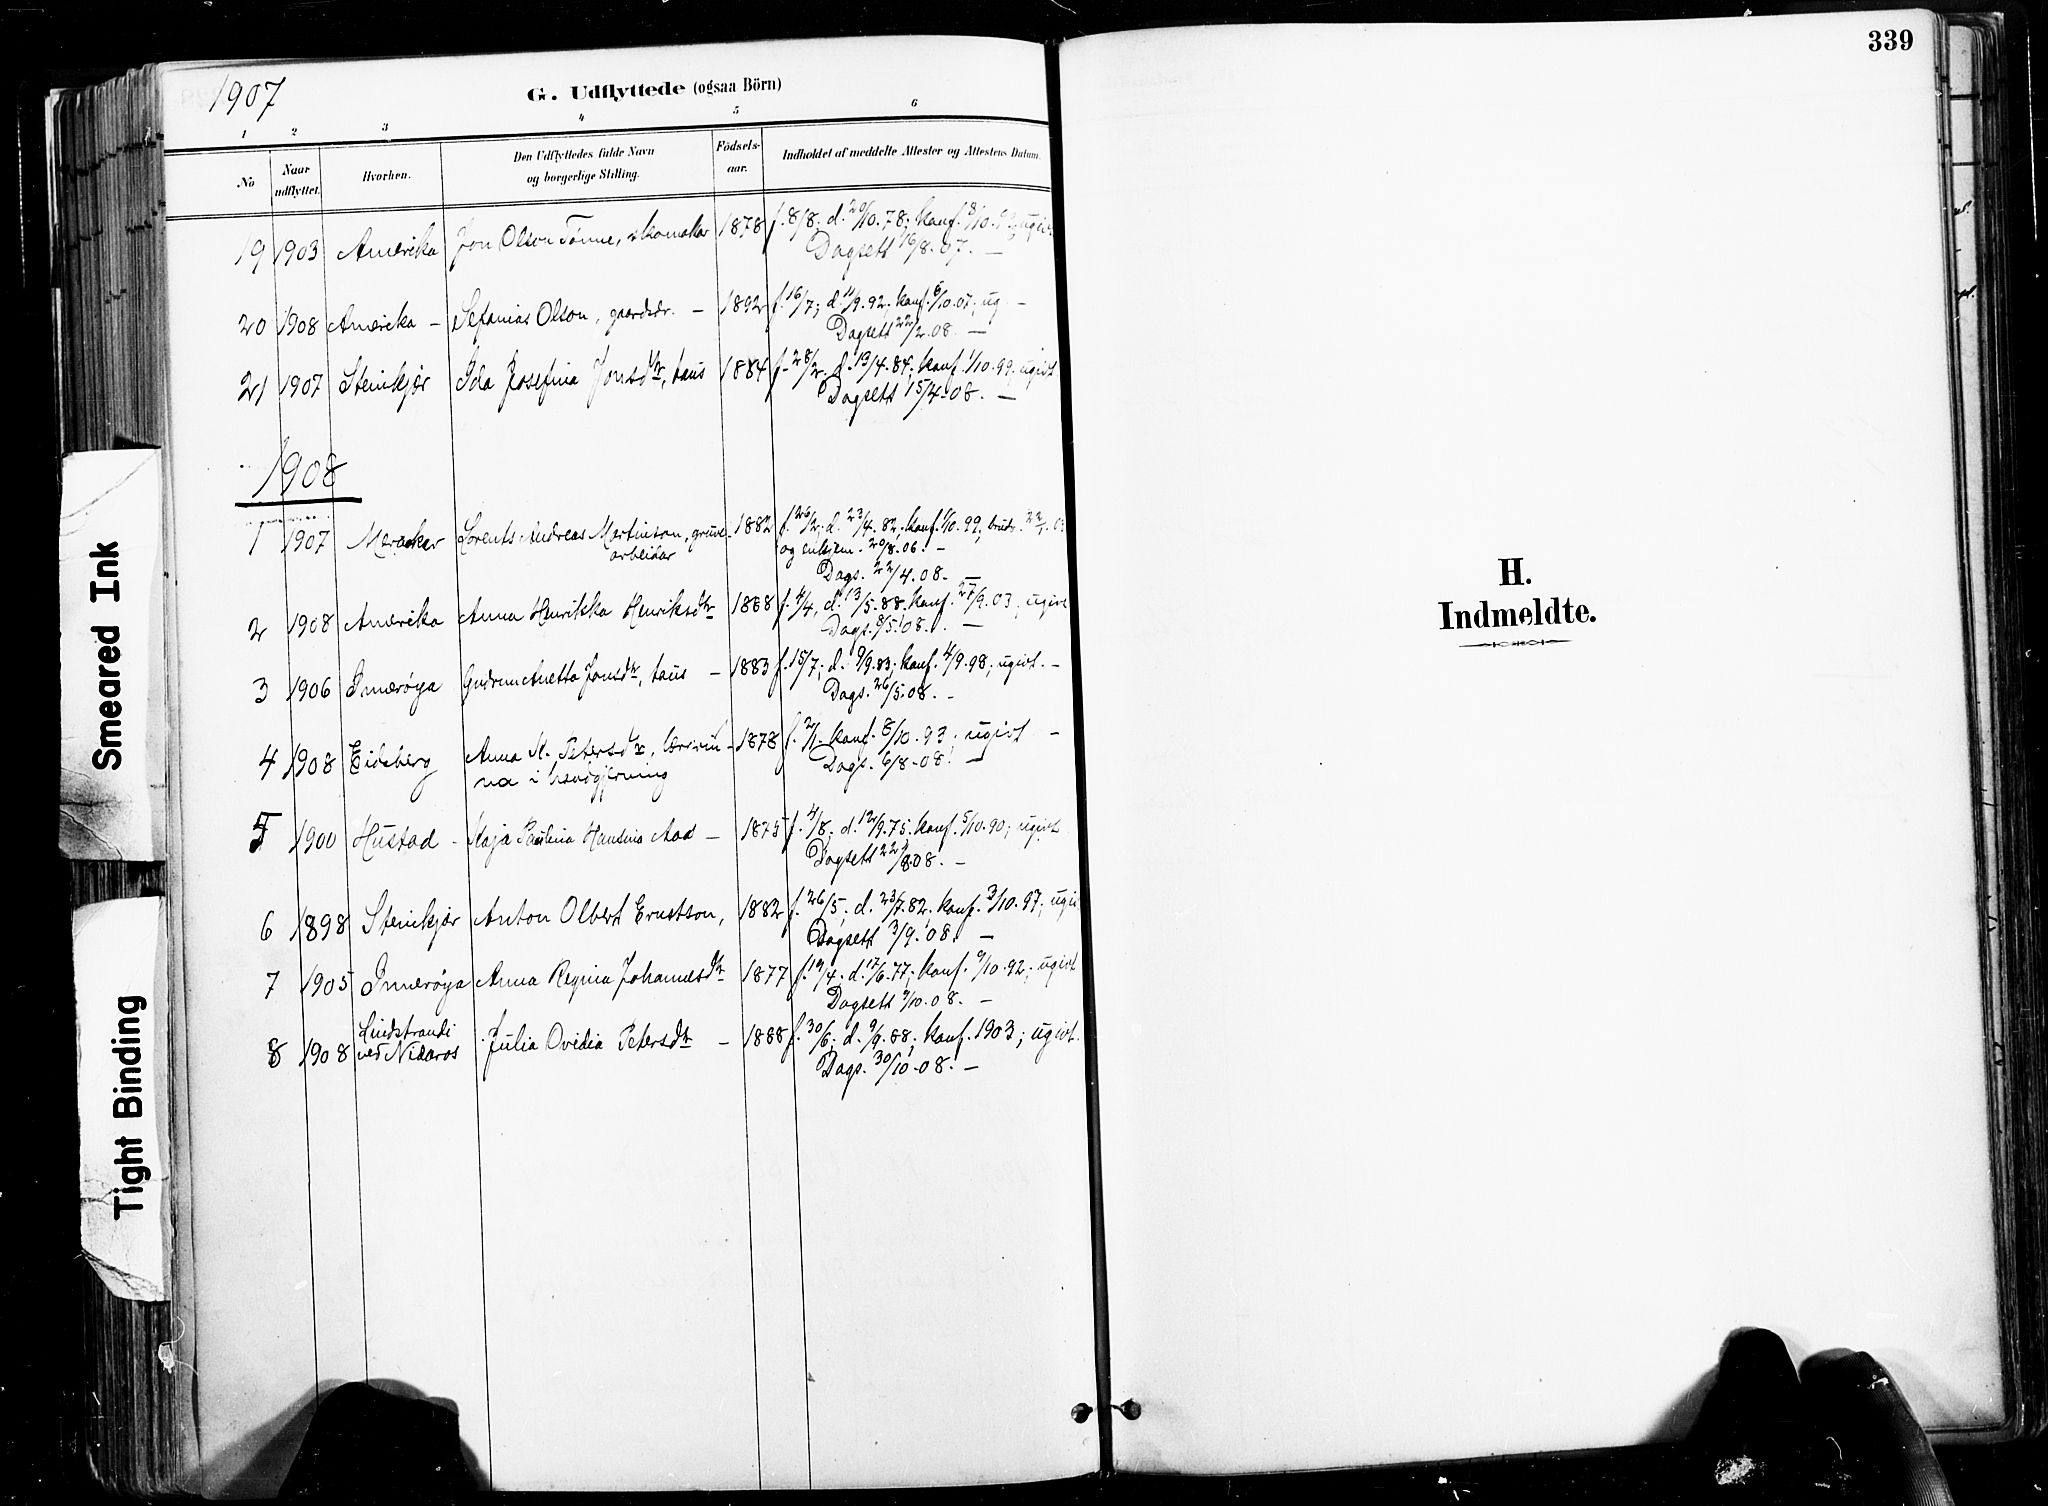 339
1907
G. Udflyttede (ogsaa Börn)
1 2 3 4 5 6
No
Naar udflyttet.
Hvorhen.
Den Udflyttedes fulde Navn
og borgerlige Stilling.
Födsels-
aar.
Indholdet af meddelte Attester og Attestens Datum.
19 1903 Amerika Jon Olson Tønne, skomakar 1878 f. 8/8; d. 20/10.78; konf. 8/10. ugivt
Dagsett 16/8.07. —
20 1908 Amerika — Sefanias Olson, gaardsdr. — 1892 f. 16/7; d. 11/9.92; konf. 6/10.07; ug. —
Dagsett 22/2.08. —
21 1907 Steinkjær Ida Josefina Jonsdtr, taus 1884 f. 28/2. d. 13/4.84; konf. 1/10.99; ugivt
Dagsett 15/4.08. —
1908
1 1907 Meraaker Lorents Andreas Martinson, gruve- 1882 f. 26/2; d. 23/4.82; konf. 1/10.99; brudv. 22/1.03
arbeidar og enkjem. 20/8.06. —
Dags. 22/4.08. —
2 1908 Amerika Anna Henrikka Henriksdtr 1888 f. 4/4, d. 13/5.88. konf. 27/9.03; ugivt
Dags. 8/5.08. —
3 1906 Inderøya Gudrun Anetta Jonsdtr, taus — 1883 f. 15/7; d. 9/9.83; konf. 4/9.98; ugivt. —
Dags. 26/5.08. —
4 1908 Eidsberg Anna M. Petersdtr, lærarin- 1878 f. 2/1. konf. 8/10.93; ugivt —
na i handgjerning Dags. 6/8.08. —
5 1900 Hustad — Kaja Paulina Hansina Aas — 1875 f. 4/8; d. 12/9.75. konf. 5/10.90; ugivt
Dagsett 22/8.08. —
6 1898 Steinkjær Anton Olbert Ernstson, 1882 f. 26/5; d. 23/7.82; konf. 3/10.97; ugivt
Dagsett 3/9.08. —
7 1905 Inderøya Anna Regina Johannesdtr 1877 f. 19/4. d. 17/6.77; konf. 9/10.92; ugivt
Dagsett 9/10.08. —
8 1908 Lindstrandi
ved Nidaros Julia Ovidia Petersdtr — 1888 f. 30/6; d. 9/9.88; konf. 1903; ugivt.
Dags. 30/10.08. —
H.
Indmeldte.
Smeared Ink
Tight Binding